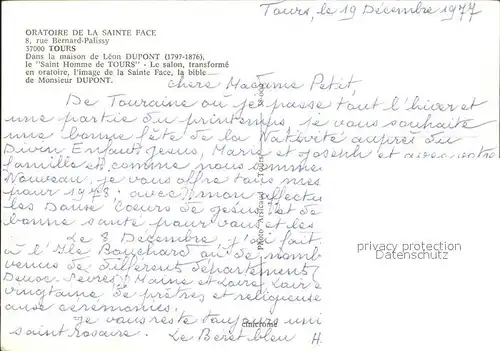 Tours, le 19 Décembre 1977
ORATOIRE DE LA SAINTE FACE
8, rue Bernard-Palissy
37000 TOURS
Dans la maison de Léon DUPONT (1797-1876),
le "Saint Homme de TOURS" - Le salon, transformé
en oratoire, l'image de la Sainte Face, la bible
de Monsieur DUPONT.
Chère Madame Petit,
De Touraine où je passe tout l'hiver et
une partie du printemps, je vous souhaite
une bonne fête de la Nativité auprès du
Divin Enfant Jésus, Marie et Joseph et avec votre
famille et comme nous sommes
Nouveau, je vous offre tous mes
pour 1978. avec mon affectu
les Doux Coeurs de Jésus et de
bonne santé pour vous et les
Le 8 Décembre, j'ai fait
à l'Ile Bouchard où de nomb
venus de différents département
Deux Sèvres, Maine et Loire, Loir e
vingtaine de prêtres et religieuse
aux cérémonies.
Je vous reste toujours uni
saint rosaire. Le Béret bleu H
Photo Arsicaud - Tours
cim|crome
privacy protection
Datenschutz